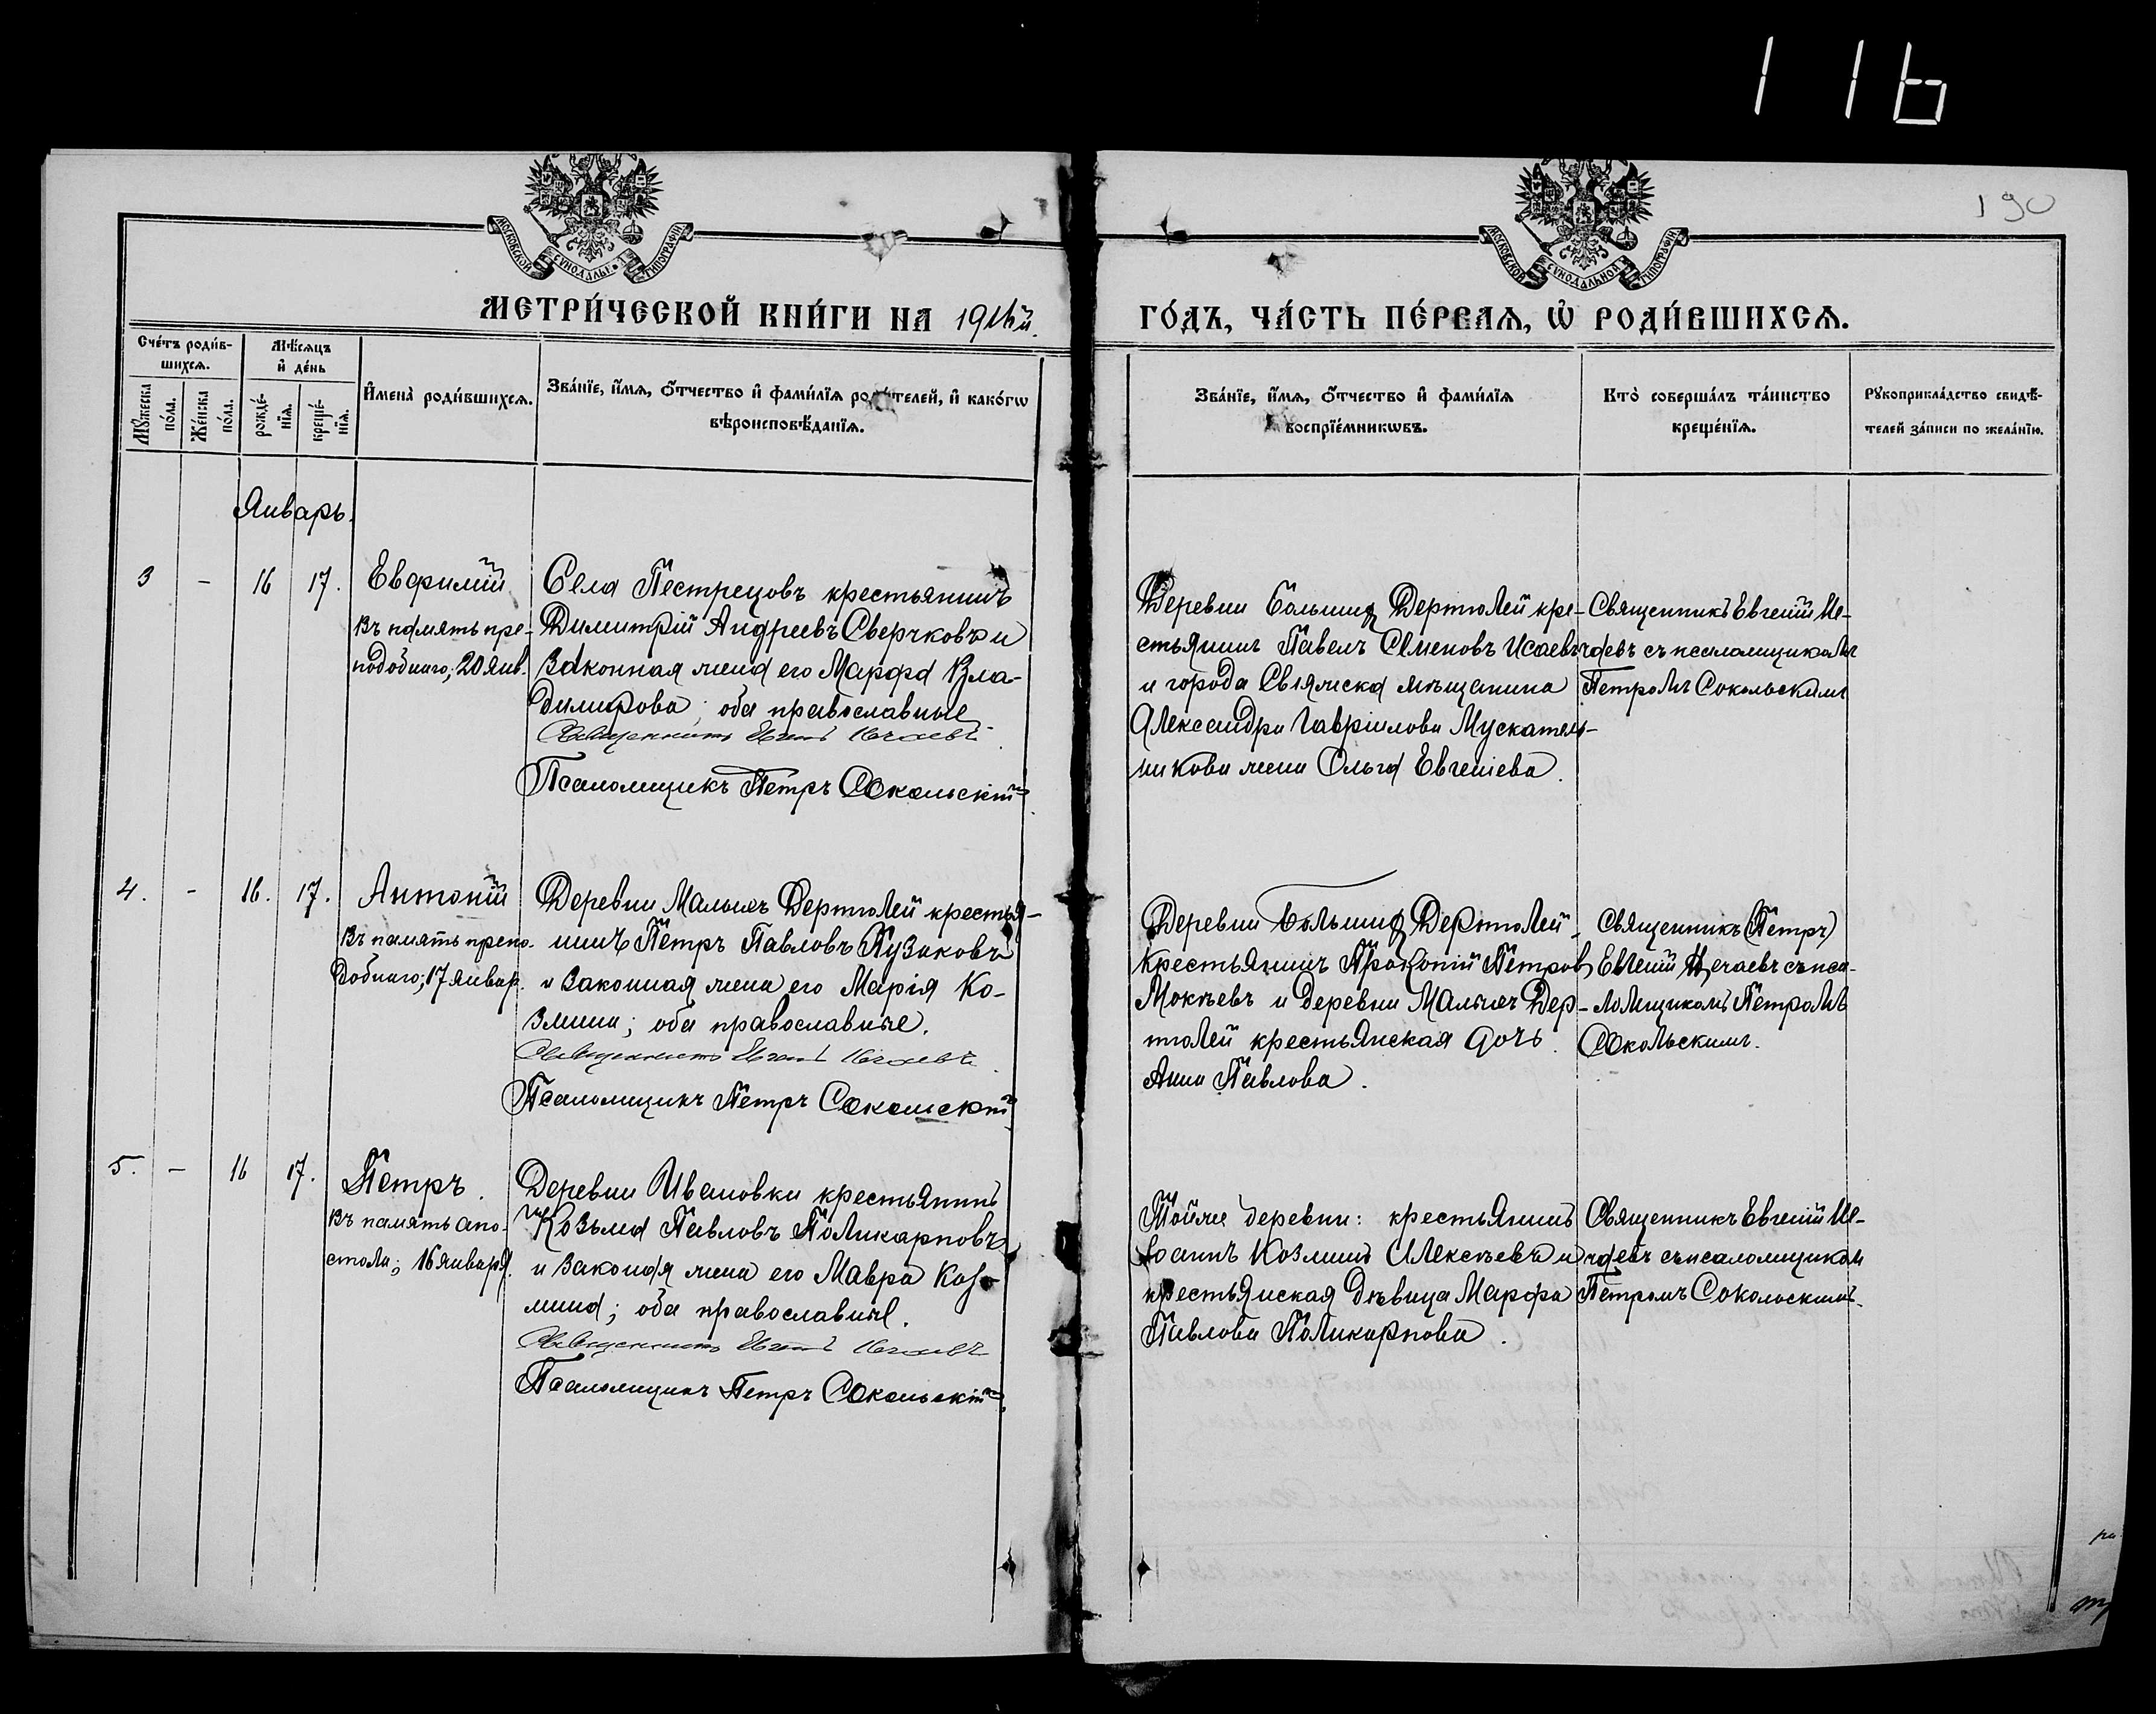 116
190
МОСКОВСКОЙ СѴНОДАЛЬНОЙ ТИПОГРАФІИ
МОСКОВСКОЙ СѴНОДАЛЬНОЙ ТИПОГРАФІИ
МЕТРИ́ЧЕСКОЙ КНИ́ГИ НА 1916й.
ГО́ДЪ, ЧА́СТЬ ПЕ́РВАѦ, Ѡ҆ РОДИ́ВШИХСѦ.
Сче́тъ роди́в-
шихсѧ.
Мꙋ́жеска по́ла.
Же́нска по́ла.
Мѣ́сѧцъ
и҆ де́нь
рожде́-
нїѧ.
креще́-
нїѧ.
И҆мена̀ роди́вшихсѧ.
Зва́нїе, и҆́мѧ, ѻ҆́тчество и҆ фами́лїѧ роди́телей, и҆ како́гѡ
вѣроисповѣ́данїѧ.
Зва́нїе, и҆́мѧ, ѻ҆́тчество и҆ фами́лїѧ
воспрїе́мникѡвъ.
Кто̀ соверша́лъ та́инство
креще́нїѧ.
Рꙋкоприкла́дство свидѣ́-
телей за́писи по жела́нїю.
Январь.
3 - 16 17.
Евфимій
Въ память пре-
подобнаго; 20 янв.
Села Пестрецовъ крестьянинъ
Димитрій Андреевъ Сверчковъ и
законная жена его Марфа Вла-
димирова; оба православные
Священникъ Евгеній Нечаевъ
Псаломщикъ Петръ Сокольскій
Деревни Большихъ Дертюлей кре-
стьянинъ Павелъ Семеновъ Исаевъ
и города Свіяжска мѣщанина
Александра Гавріилова Мускатель-
никова жена Ольга Евгеніева.
Священникъ Евгеній Не-
чаевъ съ псаломщикомъ
Петромъ Сокольскимъ
4. - 16. 17.
Антоній
Въ память препо-
добнаго; 17 январ.
Деревни Малыхъ Дертюлей крестья-
нинъ Петръ Павловъ Пузаковъ
и законная жена его Марія Ко-
змина; оба православные.
Священникъ Евгеній Нечаевъ
Псаломщикъ Петръ Сокольскій
Деревни Большихъ Дертюлей
крестьянинъ Прокопій Петровъ
Мокѣевъ и деревни Малыхъ Дер-
тюлей крестьянская дочь
Анна Павлова.
Священникъ (Петръ)
Евгеній Нечаевъ съ пса-
ломщикомъ Петромъ
Сокольскимъ.
5. - 16 17.
Петръ.
Въ память апо-
стола; 16 января.
Деревни Ивановки крестьянинъ
Козьма Павловъ Поликарповъ
и законая жена его Мавра Коз-
мина; оба православные.
Священникъ Евгеній Нечаевъ
Псаломщикъ Петръ Сокольскій
Тойже деревни: крестьянинъ
Іоаннъ Козминъ Алексѣевъ и
крестьянская дѣвица Марфа
Павлова Поликарпова.
Священникъ Евгеній Не-
чаевъ съ псаломщикомъ
Петромъ Сокольскимъ.